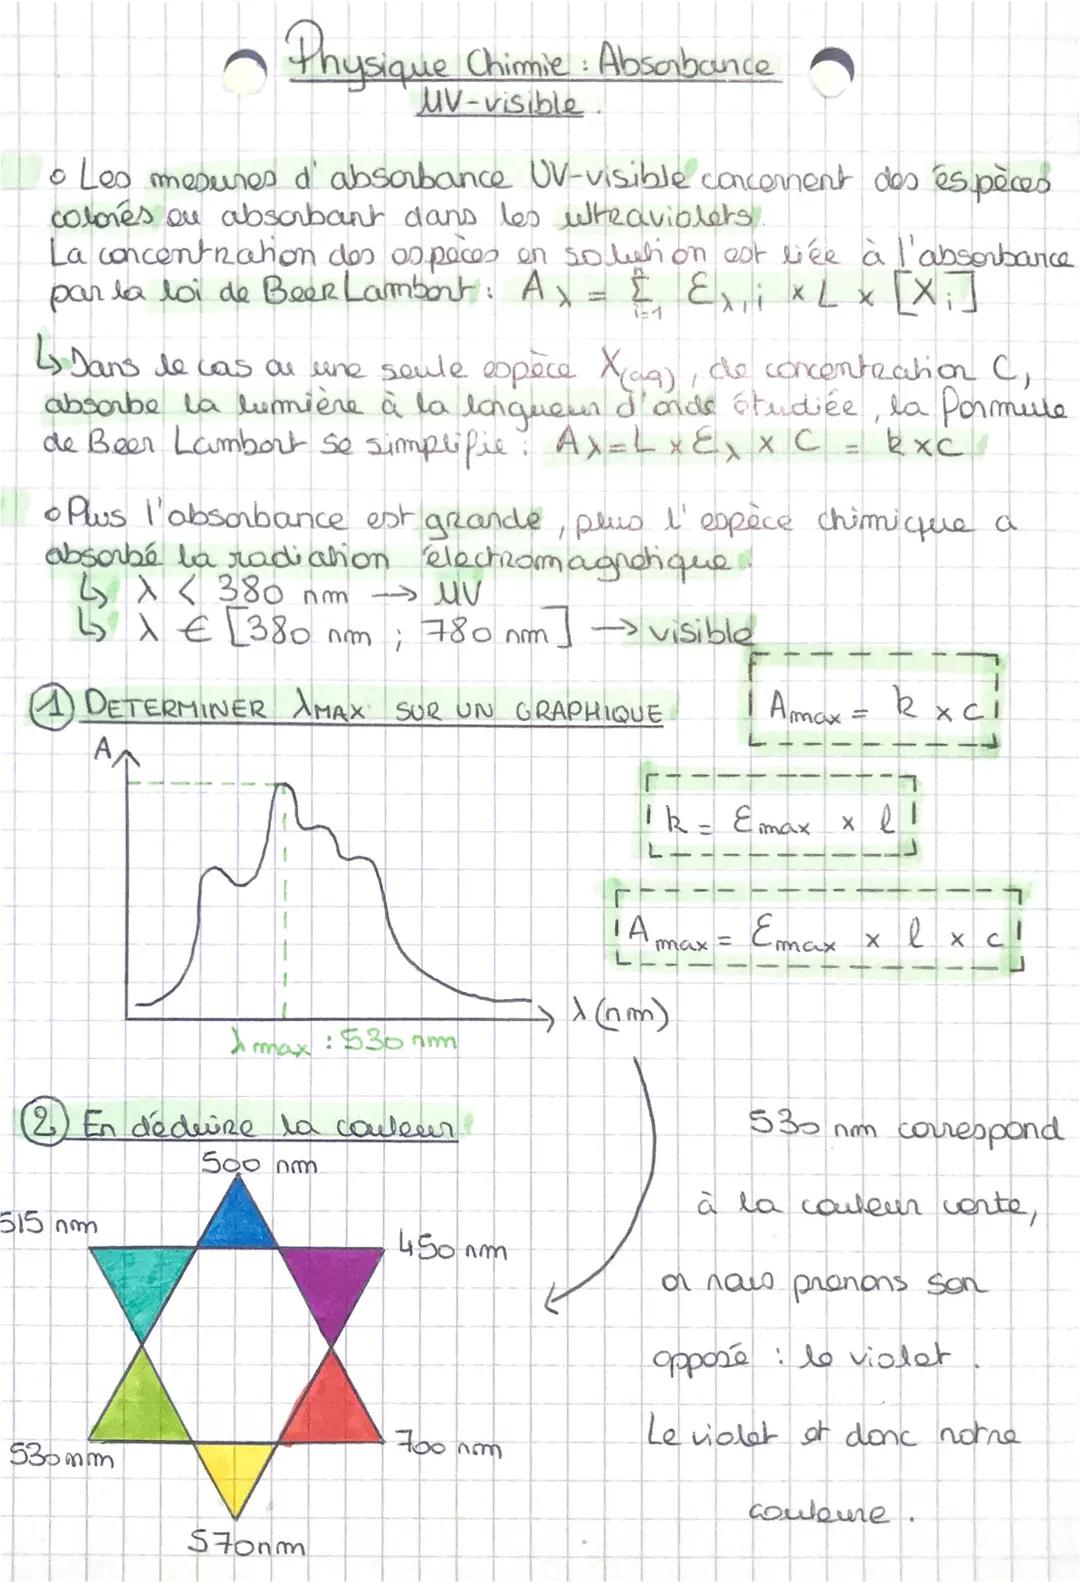 Physique Chimie : Absorbance
UV-visible.
o Les mesures d'absorbance UV-visible concernent des espèces
colorés ou absorbant dans les ultraviolets.
La concentration des espèces en solution est liée à l'absorbance
par la loi de Beer Lambert : Aλ = Σ (i=1, n) ελ,i × L × [Xi]
↳ Dans le cas ou une seule espèce X(aq), de concentration C,
absorbe la lumière à la longueur d'onde étudiée, la formule
de Beer Lambert se simplifie : Aλ = L × ελ × C = k × c
o Plus l'absorbance est grande, plus l'espèce chimique a
absorbé la radiation électromagnétique.
↳ λ < 380 nm → UV
↳ λ ∈ [380 nm ; 780 nm] → visible
① DETERMINER λMAX SUR UN GRAPHIQUE
Amax = k × c
A
k = Emax × l
Amax = Emax × l × c
λ (nm)
λmax : 530 nm
② En déduire la couleur
500 nm
515 nm
450 nm
530 nm
700 nm
570nm
530 nm correspond
à la couleur verte,
or nous prenons son
opposé : le violet.
Le violet et donc notre
couleure.